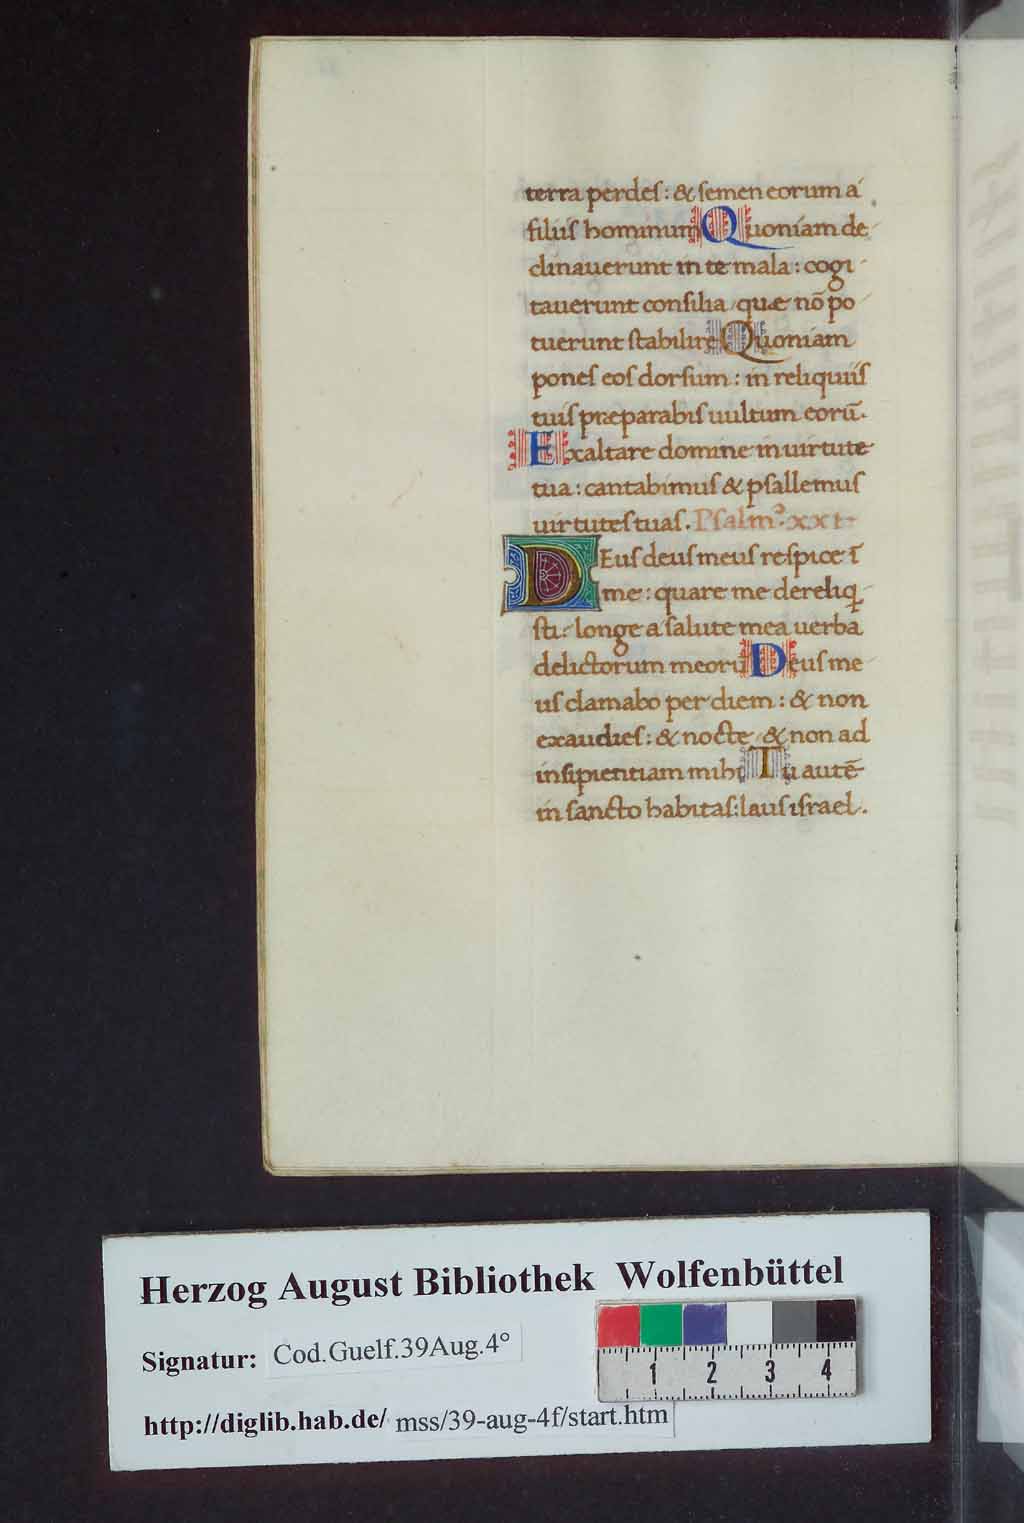 terra perdeſ: & ſemen eorum a
filiiſ hominum Quoniam de
clinauerunt in te mala: cogi
tauerunt conſilia quæ nō po
tuerunt ſtabilire Quoniam
poneſ eoſ dorſum: in reliquiiſ
tuiſ præparabiſ uultum eorū.
Exaltare domine in uirtute
tua: cantabimuſ & pſallemuſ
uirtuteſ tuaſ. Pſalm⁹. xxi.
DEuſ deuſ meuſ reſpice ī
me: quare me dereliq̄
ſti: longe a ſalute mea uerba
delictorum meorū Deuſ me
uſ clamabo per diem: & non
exaudieſ: & nocte & non ad
inſipientiam mihi Tu autē
in ſancto habitaſ: lauſ iſrael.
Herzog August Bibliothek Wolfenbüttel
Signatur: Cod.Guelf.39Aug.4°
1 2 3 4
http://diglib.hab.de/ mss/39-aug-4f/start.htm